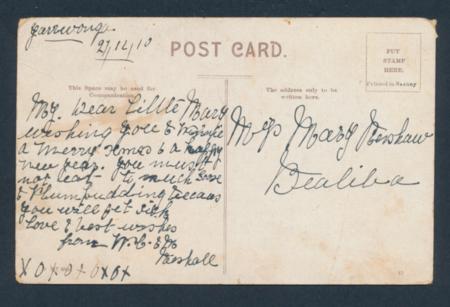 Yarrawonga
27/12/10
POST CARD.
PUT
STAMP
HERE.
Printed in Saxony
This Space may be used for
Communications.
The address only to be
written here.
My Dear Little Mary
wishing you &
a Merry Xmas & a happy
new year. you must
not eat to much
& Plumpudding Becaus
you will get sick
Love & best wishes
from W.C. &
Marshall
X O X O X O X
Mary
Bealiba